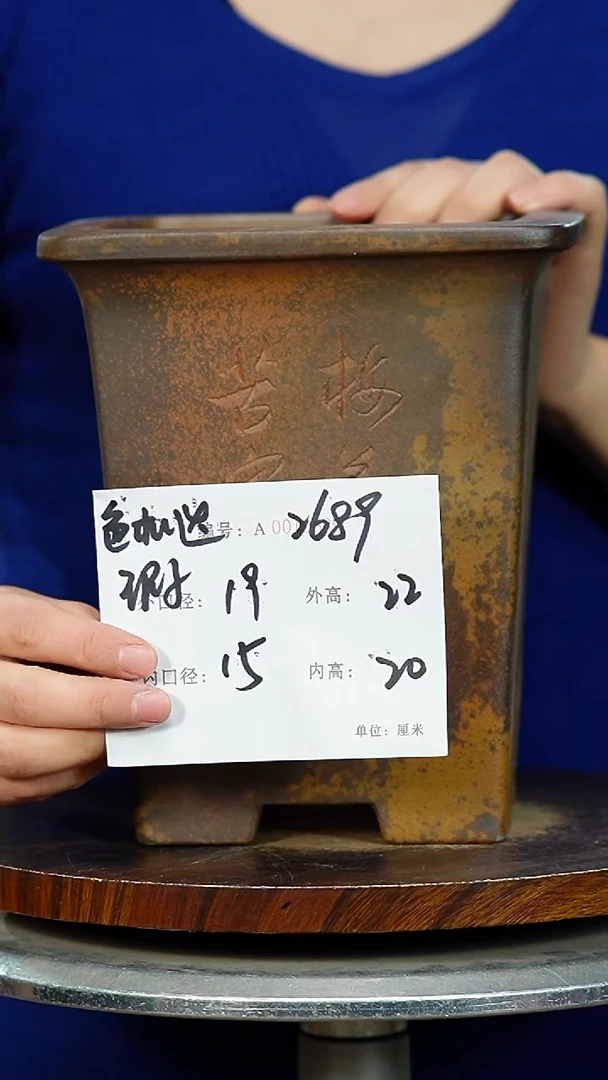 梅
苦
编号: A 002689
外口径: 19
外高: 22
内口径: 15
内高: 20
单位: 厘米